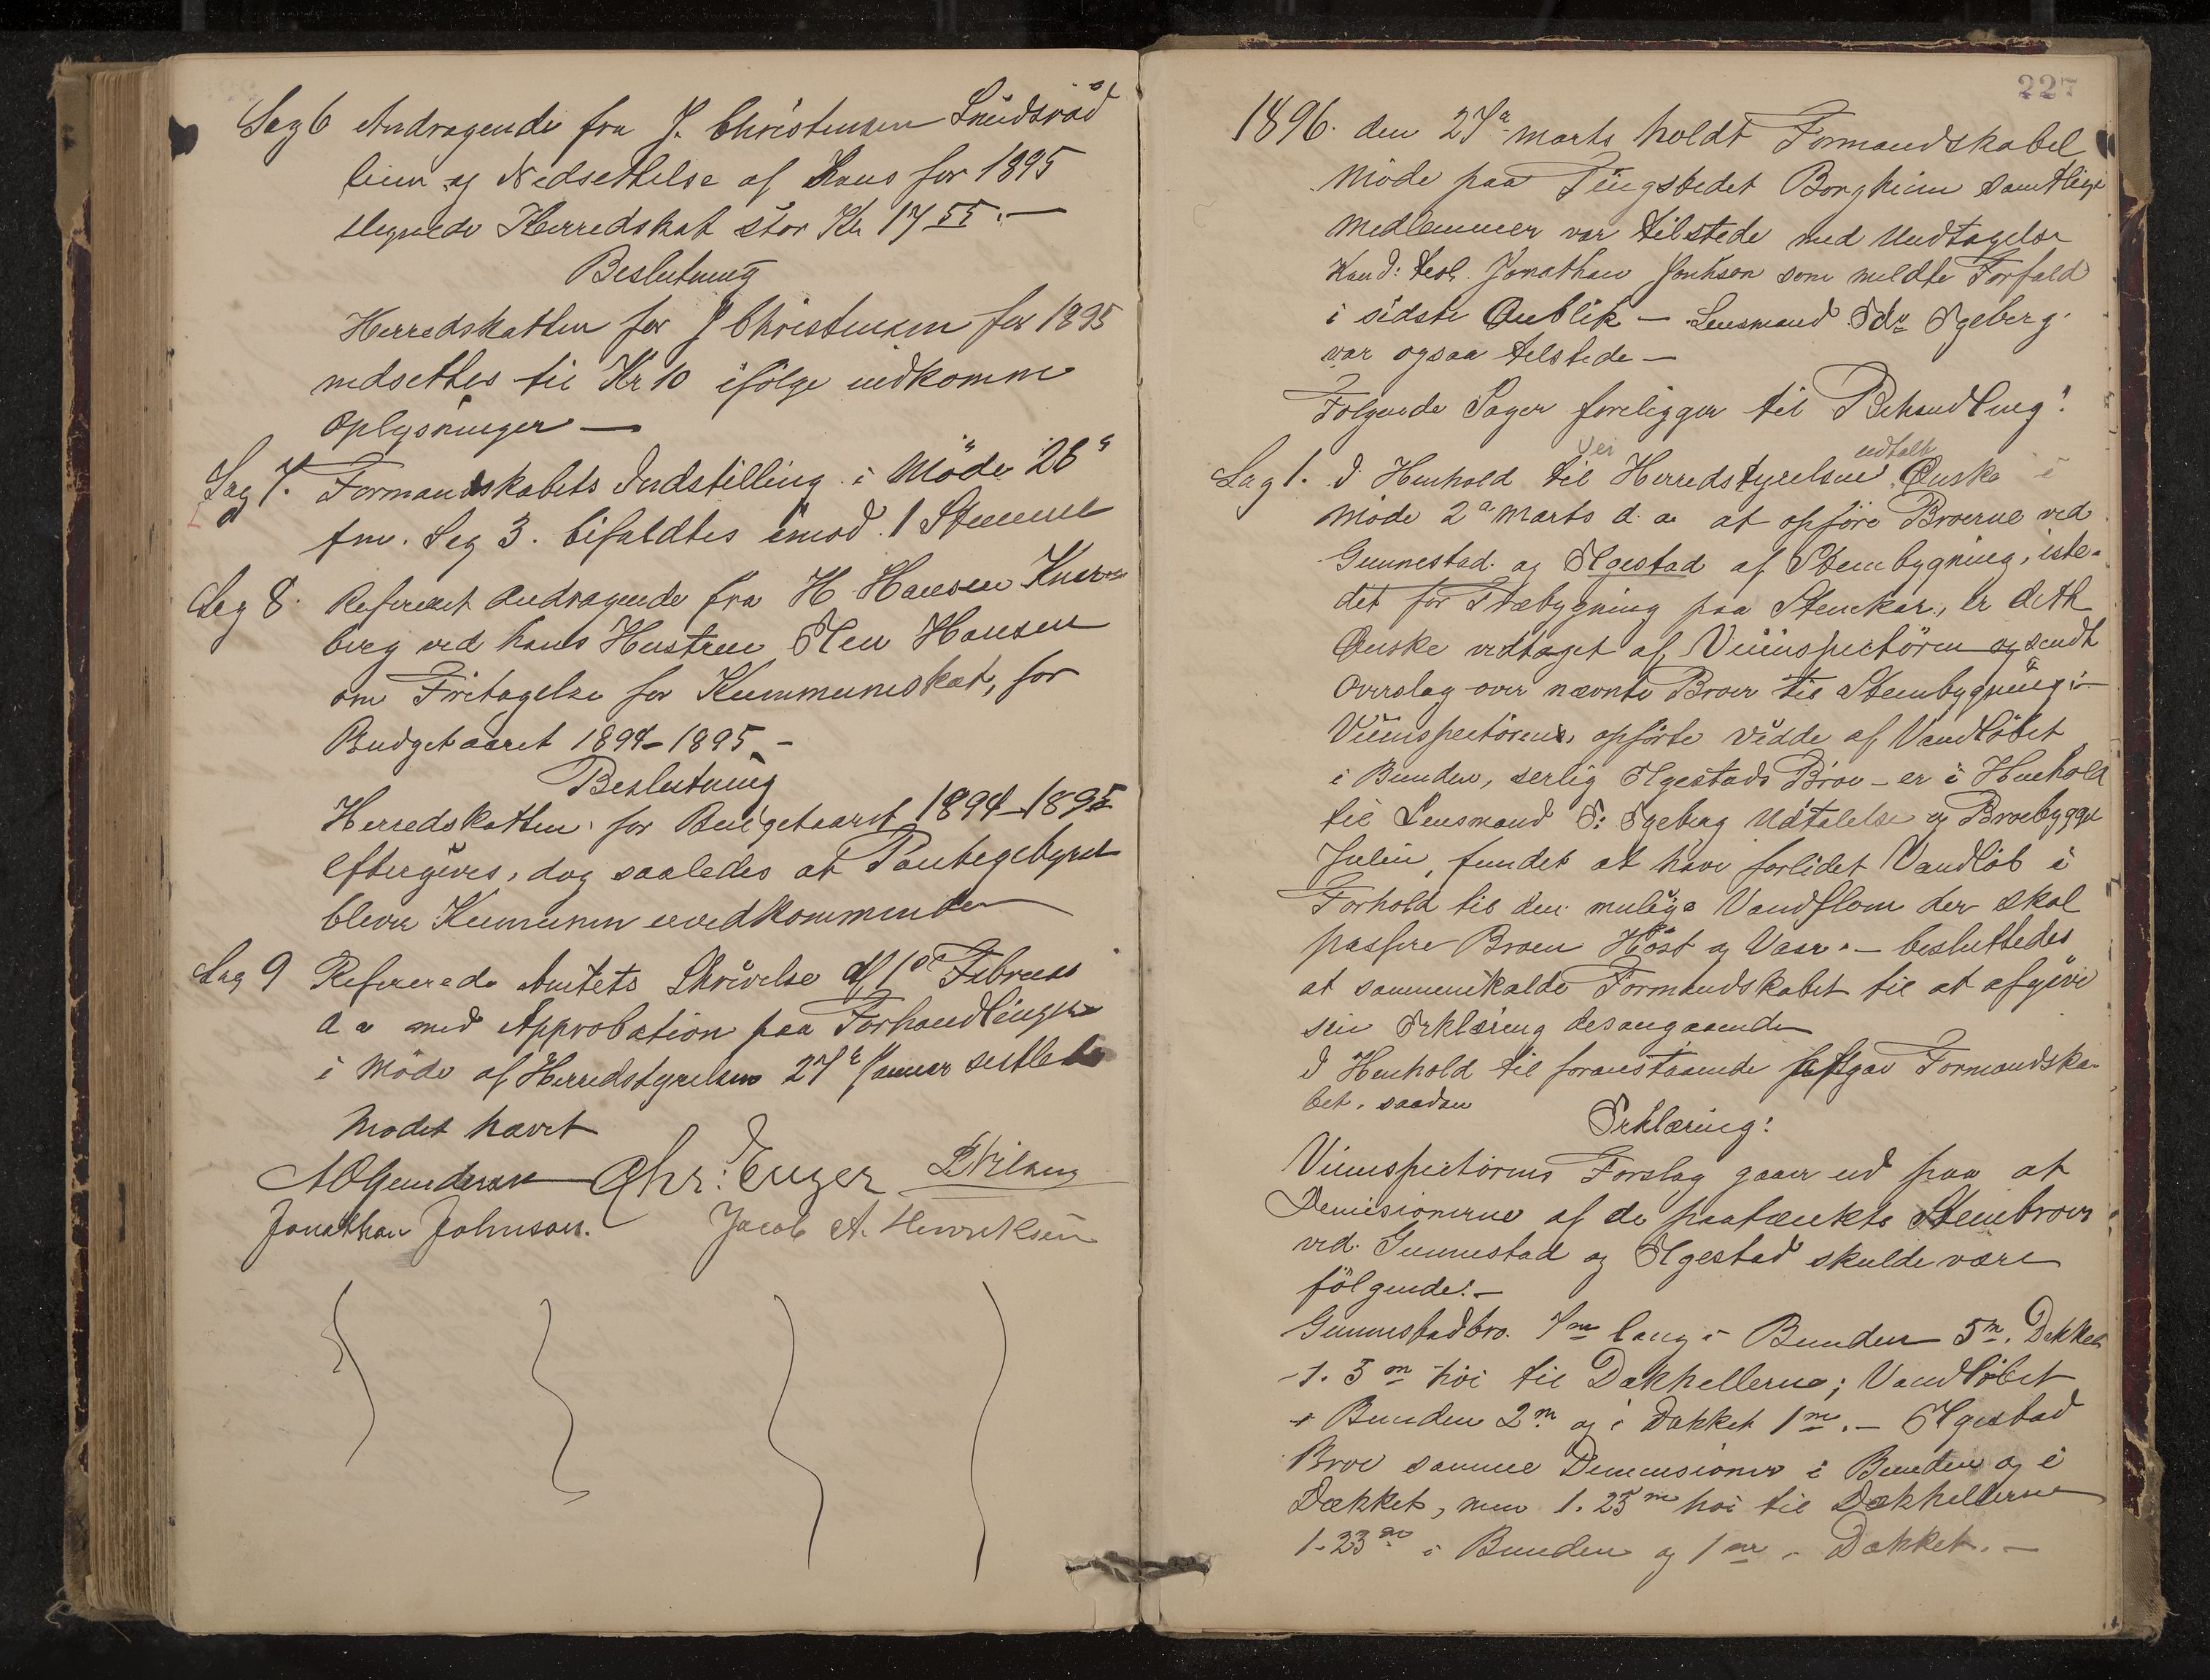 Sag 6 Andragende fra J. Christensen Snudsröd
lien og Nedsettelse af Hans for 1895
ilignede Herredskat stor Kr 17 55. —
Beslutning
Herredskatten for J Christensen for 1895
nedsettes til Kr 10 ifölge indkomne
Oplysninger —
Sag 7. Formandskabets Indstilling i Möde 26"
fm. Sag 3. bifaldtes imod 1 Stemme
Sag 8. Referert Andragende fra H Hansen
berg ved hans Hustru Elen Hansen
om Fritagelse for Kummuneskat, for
Budgetaaret 1894–1895 –
Beslutning
Herredskatten for Budgetaaret 1894–1895
eftergives, dog saaledes at Pantegebyret
blever Kumunen uvedkommende
Sag 9 Refererede Amtets Skrivelse af 10 Februar
d a med Approbation paa Forhandlinger
i Möde af Herredstyrelsen 27de Januar sidstl
Modet hævet
A O Gundersen Chr: Enger
Jonathan Johnson. Jacob A. Henriksen
227
1896. den 27de marts holdt Formandskabet
Möde paa Tingstedet Borgheim samtlige
Medlemmer var tilstede med Undtagelse
Kand: teol. Jonathan Jonhson som meldte Forfald
i sidste Öieblik — Lensmand Edv Egeberg
var ogsaa tilstede —
Fölgende Sager foreligger til Behandling:
Vei udtalte
Sag 1. I Henhold til Herredstyrelsens Önske i
Möde 2de Marts d. a. at opföre Broerne ved
Gunnestad og Elgestad af Stenbygning, iste-
det for Træbygning paa Stenkar, er dette
Önske vedtaget af Veiinspektören og sendt
Overslag over nævnte Broer til Stenbygning
Veiinspektörens opförte Vidde af Vandlöbet
i Bunden, serlig Elgestads Broe – er i Henhold
til Lensmand E. Egeberg Udtalelse og Broebygger
Julin, fundet at have forlidet Vandlöb i
Forhold til den mulige Vandflom der skal
passere Broen Höst og Vaar. – besluttedes
at sammenkalde Formandskabet til at afgive
sin Erklæring desangaaende
I Henhold til foranstaaende afgav Formandska-
bet saadan
Erklæring:
Veiinspektörens Forslag gaar ud paa at
Demisionerne af de paatænkte Stenbroer
ved Gunnestad og Elgestad skulde være
fölgende: –
Gunnestadbro. 7 m lang i Bunden 5 m. Dekket
1.3 m höi til Dækhellerne; Vandlöbet
i Bunden 2 m og i Dækket 1 m. – Elgestad
Broe samme Demensioner i Bunden og i
Dækket, men 1.25 m höi til Dækhellerne
1.23 m i Bunden og 1 m i Dækket. –